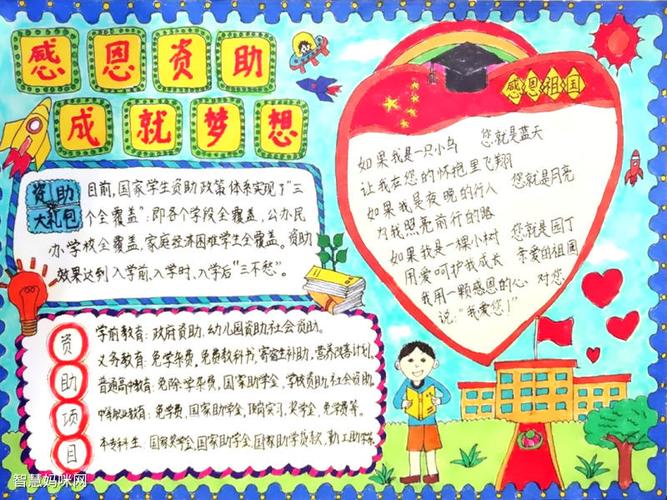 感恩资助
成就梦想
资助
大礼包
目前,国家学生资助政策体系实现了“三
个全覆盖”:即各个学段全覆盖,公办民
办学校全覆盖,家庭经济困难学生全覆盖。资助
效果达到入学前、入学时、入学后“三不愁”。
资助项目
学前教育:政府资助、幼儿园资助社会资助。
义务教育:免学杂费、免费教科书、寄宿生补助、营养改善计划。
普通高中教育:免除学杂费、国家助学金、学校资助、社会资助。
中等职业教育:免学费、国家助学金、顶岗实习、奖学金、免学费等。
本专科生:国家奖学金、国家助学金、国家助学贷款、勤工助学
感恩祖国
如果我是一只小鸟 您就是蓝天
让我在您的怀抱里飞翔
如果我是夜晚的行人 您就是月亮
为我照亮前行的路
如果我是一棵小树 您就是园丁
用爱呵护我成长 亲爱的祖国
我用一颗感恩的心 对您
说:“我爱您!”
智慧妈咪网